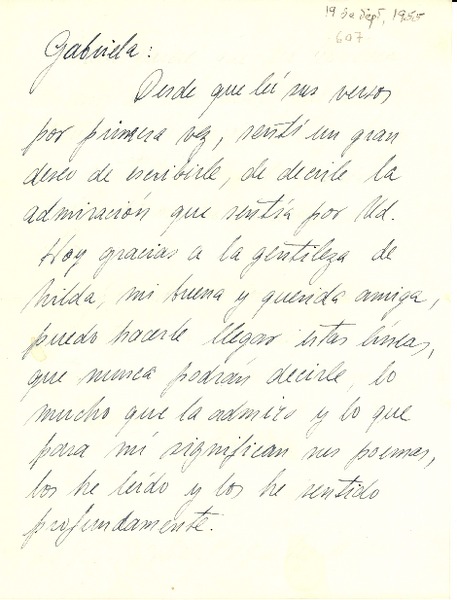 19 sept, 1955
607
Gabriela:
Desde que leí sus versos
por primera vez, sentí un gran
deseo de escribirle, de decirle la
admiración que sentía por Ud.
Hoy gracias a la gentileza de
Nilda, mi buena y querida amiga,
puedo hacerle llegar estas líneas,
que nunca podrán decirle, lo
mucho que la admiro y lo que
para mí significan sus poemas,
los he leído y los he sentido
profundamente.